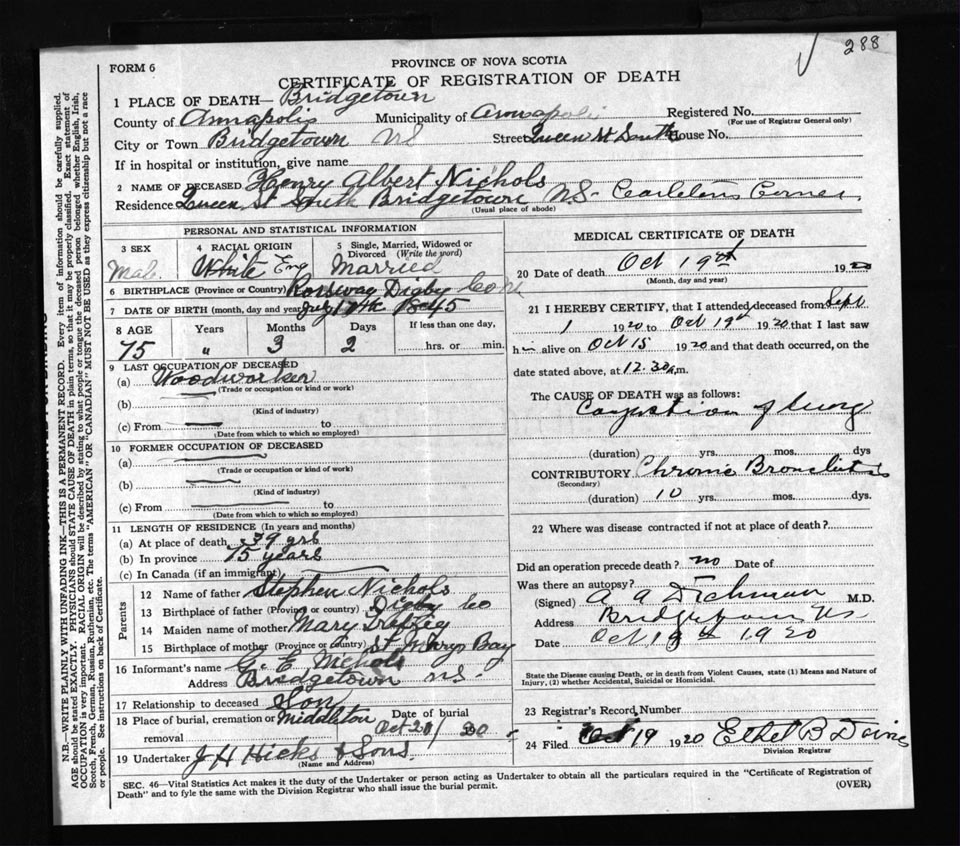 288
FORM 6
PROVINCE OF NOVA SCOTIA
CERTIFICATE OF REGISTRATION OF DEATH
1 PLACE OF DEATH— Bridgetown
County of Annapolis Municipality of Annapolis Registered No.
(For use of Registrar General only)
City or Town Bridgetown NS Street Queen St South House No.
If in hospital or institution, give name
2 NAME OF DECEASED Henry Albert Nichols
Residence Queen St South Bridgetown NS- Carleton Corner
(Usual place of abode)
PERSONAL AND STATISTICAL INFORMATION
3 SEX 4 RACIAL ORIGIN 5 Single, Married, Widowed or Divorced (Write the word)
Male White Eng Married
6 BIRTHPLACE (Province or Country) Rossway Digby Co NS
7 DATE OF BIRTH (month, day and year) July 17th 1845
8 AGE Years Months Days If less than one day,
75 " 3 2 hrs. or min.
9 LAST OCCUPATION OF DECEASED
(a) Woodworker
(Trade or occupation or kind or work)
(b)
(Kind of industry)
(c) From to
(Date from which to which so employed)
10 FORMER OCCUPATION OF DECEASED
(a)
(Trade or occupation or kind of work)
(b)
(Kind of industry)
(c) From to
(Date from which to which so employed)
11 LENGTH OF RESIDENCE (In years and months)
(a) At place of death 39 yrs
(b) In province 75 years
(c) In Canada (if an immigrant)
Parents
12 Name of father Stephen Nichols
13 Birthplace of father (Province or country) Digby Co
14 Maiden name of mother Mary
15 Birthplace of mother (Province or Country) St Marys Bay
16 Informant's name G. E. Nichols
Address Bridgetown NS-
17 Relationship to deceased Son
18 Place of burial, cremation or removal Middleton Date of burial Oct 21/20
19 Undertaker J H Hicks & Sons.
(Name and Address)
MEDICAL CERTIFICATE OF DEATH
20 Date of death Oct 19th 1920
(Month, day and year)
21 I HEREBY CERTIFY, that I attended deceased from Sept
1 1920 to Oct 19th 1920 that I last saw
him alive on Oct 15 1920 and that death occurred, on the
date stated above, at 12.30 m.
The CAUSE OF DEATH was as follows:
Congestion of lung
(duration) yrs. mos. dys
CONTRIBUTORY Chronic Bronchitis
(Secondary)
(duration) 10 yrs. mos. dys.
22 Where was disease contracted if not at place of death?
Did an operation precede death? no Date of
Was there an autopsy?
(Signed) A A Dechman M.D.
Address Bridgetown NS
Date Oct 19th 1920
State the Disease causing Death, or in death from Violent Causes, state (1) Means and Nature of
Injury, (2) whether Accidental, Suicidal or Homicidal.
23 Registrar's Record Number
24 Filed Oct 19 1920 Ethel B
Division Registrar
SEC. 46—Vital Statistics Act makes it the duty of the Undertaker or person acting as Undertaker to obtain all the particulars required in the "Certificate of Registration of
Death" and to fyle the same with the Division Registrar who shall issue the burial permit.
(OVER)
N.B.—WRITE PLAINLY WITH UNFADING INK—THIS IS A PERMANENT RECORD. Every item of information should be carefully supplied.
AGE should be stated EXACTLY. PHYSICIANS should STATE CAUSE OF DEATH in plain terms, so that it may be properly classified. Exact statement of
OCCUPATION is very important. RACIAL ORIGIN will be described by stating to what people or tongue the deceased person belonged whether English, Irish,
Scotch, French, German, Russian, Ruthenian, etc. The terms "AMERICAN" or "CANADIAN" MUST NOT BE USED as they express citizenship but not a race
or people. See instructions on back of Certificate.